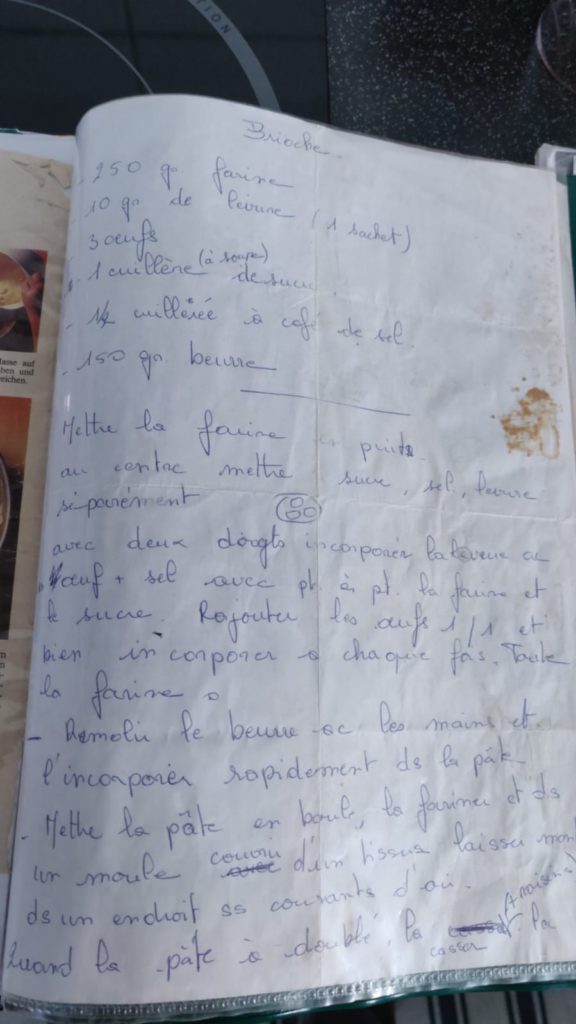 TION
Brioche
- 250 gr farine
- 10 gr de levure (1 sachet)
3 oeufs
- 1 cuillère (à soupe) de sucre
- 1/2 cuillèrée à café de sel.
- 150 gr beurre
Mettre la farine en puits
au centre mettre sucre, sel, levure
séparément
avec deux doigts incorporer la levure ac
1 oeuf + sel avec pt. à pt. la farine et
le sucre. Rajouter les oeufs 1/1 et
bien incorporer à chaque fois. Toute
la farine
- Ramolir le beurre ac les mains et
l'incorporer rapidement ds la pâte
- Mettre la pâte en boule, la fariner et ds
un moule couvrir d'un tissus laisser mon
ds un endroit ss courants d'air.
Quand la pâte à doublé, la casser la
lasse auf
ben und
eichen.